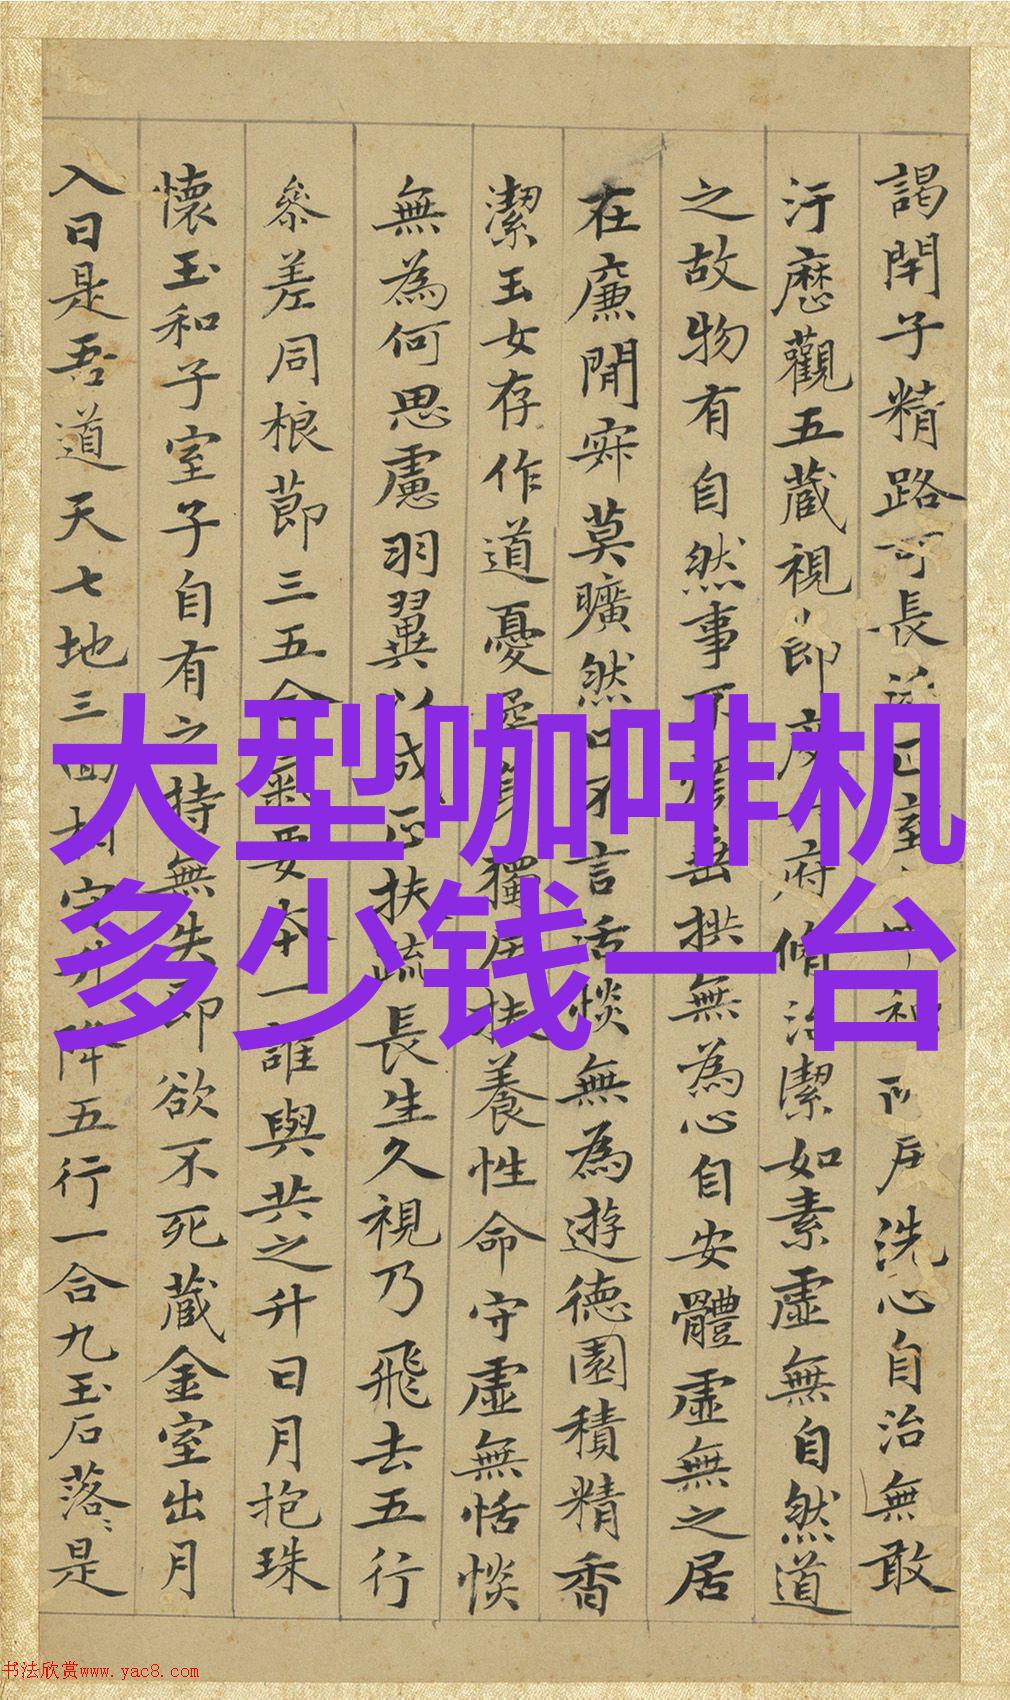 謁閇子精路可長
洗心自治無敢
汙歷觀五藏視節度
府脩治潔如素虛無自然道
之故物有自然事不
岳拱無為心自安體虛無之居
在廉閒寂莫曠然
不言活惔無為遊德園積精香
潔玉女存作道憂
獨居扶養性命守虛無恬惔
無為何思慮羽翼以成正扶疏長生久視乃飛去五行
參差同根蒂三五合氣要本一誰與共之升日月抱珠
懷玉和子室子自有之持無失即欲不死藏金室出月
入日是吾道天七地三回相守升降五行一合九玉石落〻是
大型咖啡机
多少钱一台
书法欣赏www.yac8.com